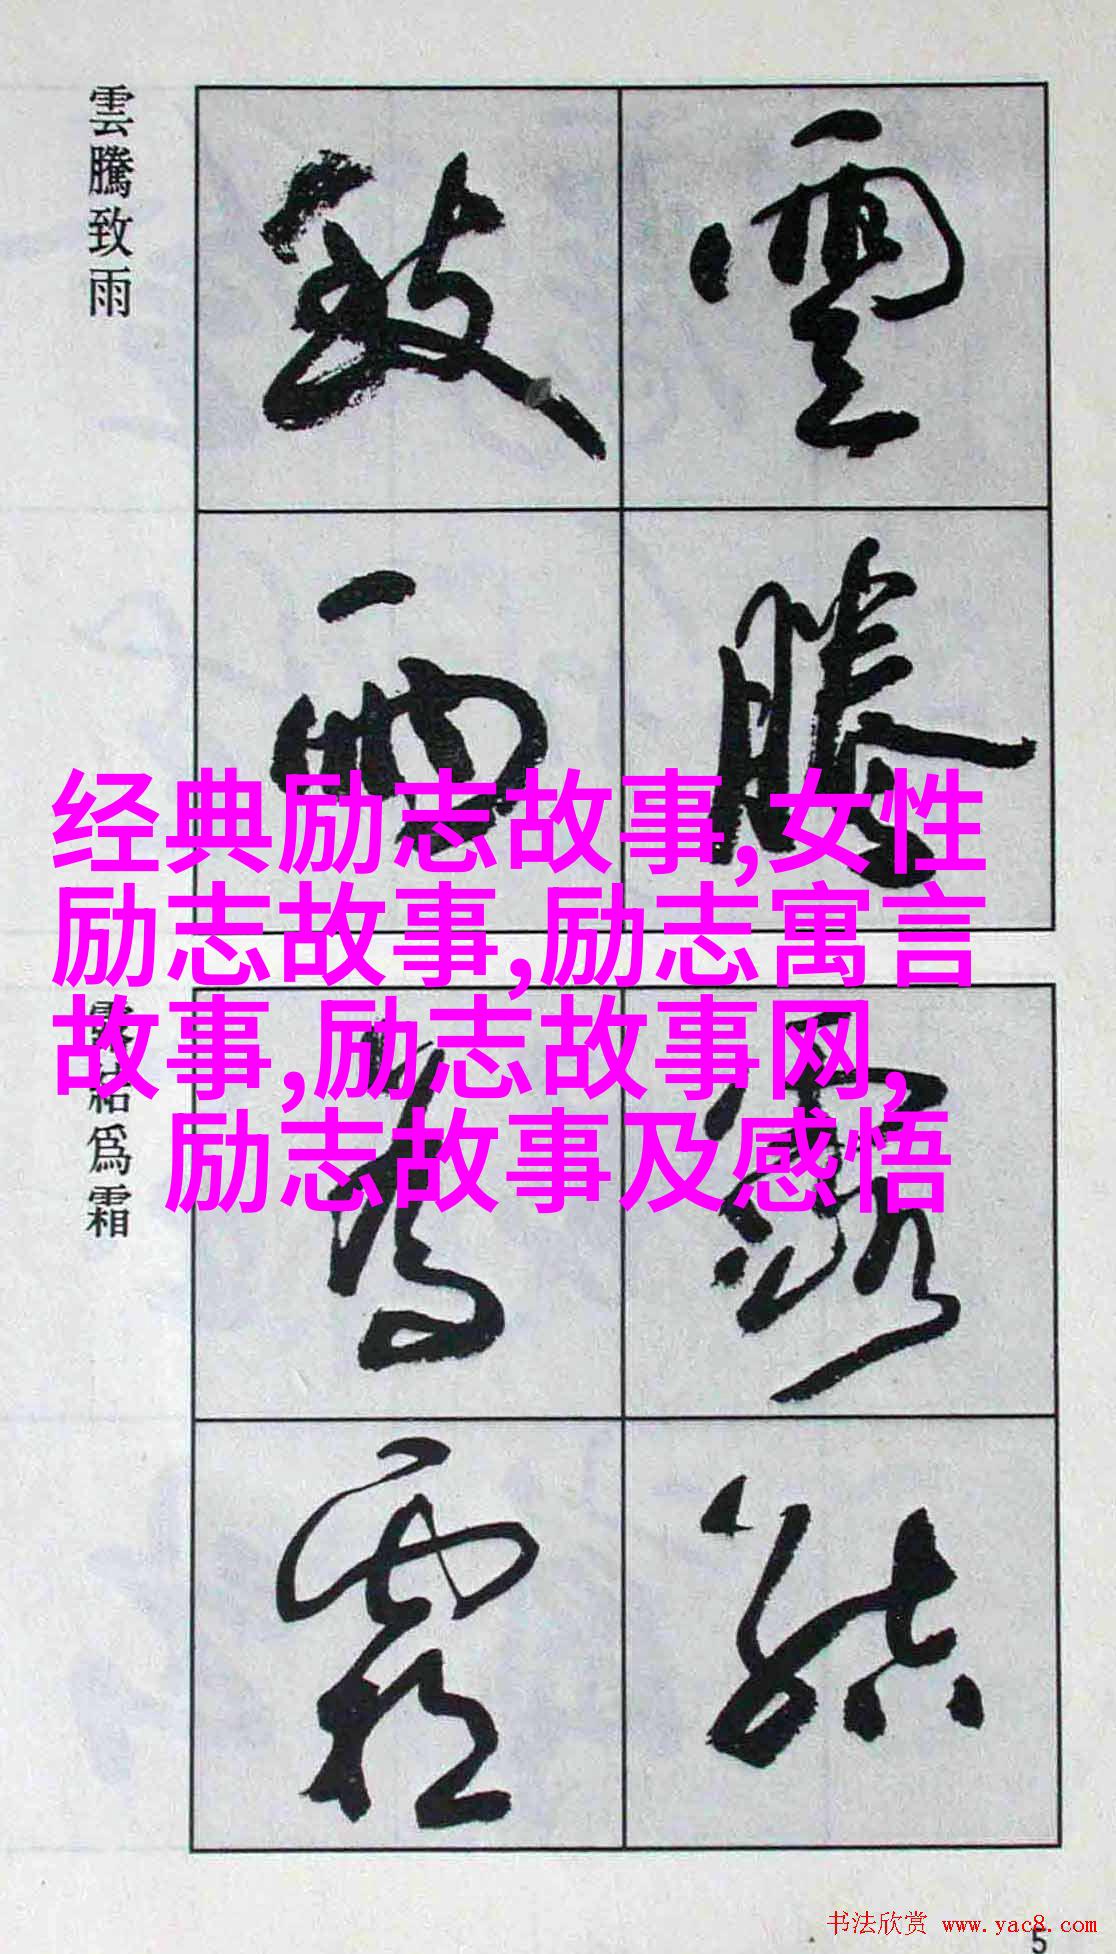 雲騰致雨
雲騰
致雨
露結為霜
露結
為霜
经典励志故事,女性
励志故事,励志寓言
故事,励志故事网,
励志故事及感悟
书法欣赏 www.yac8.com
5